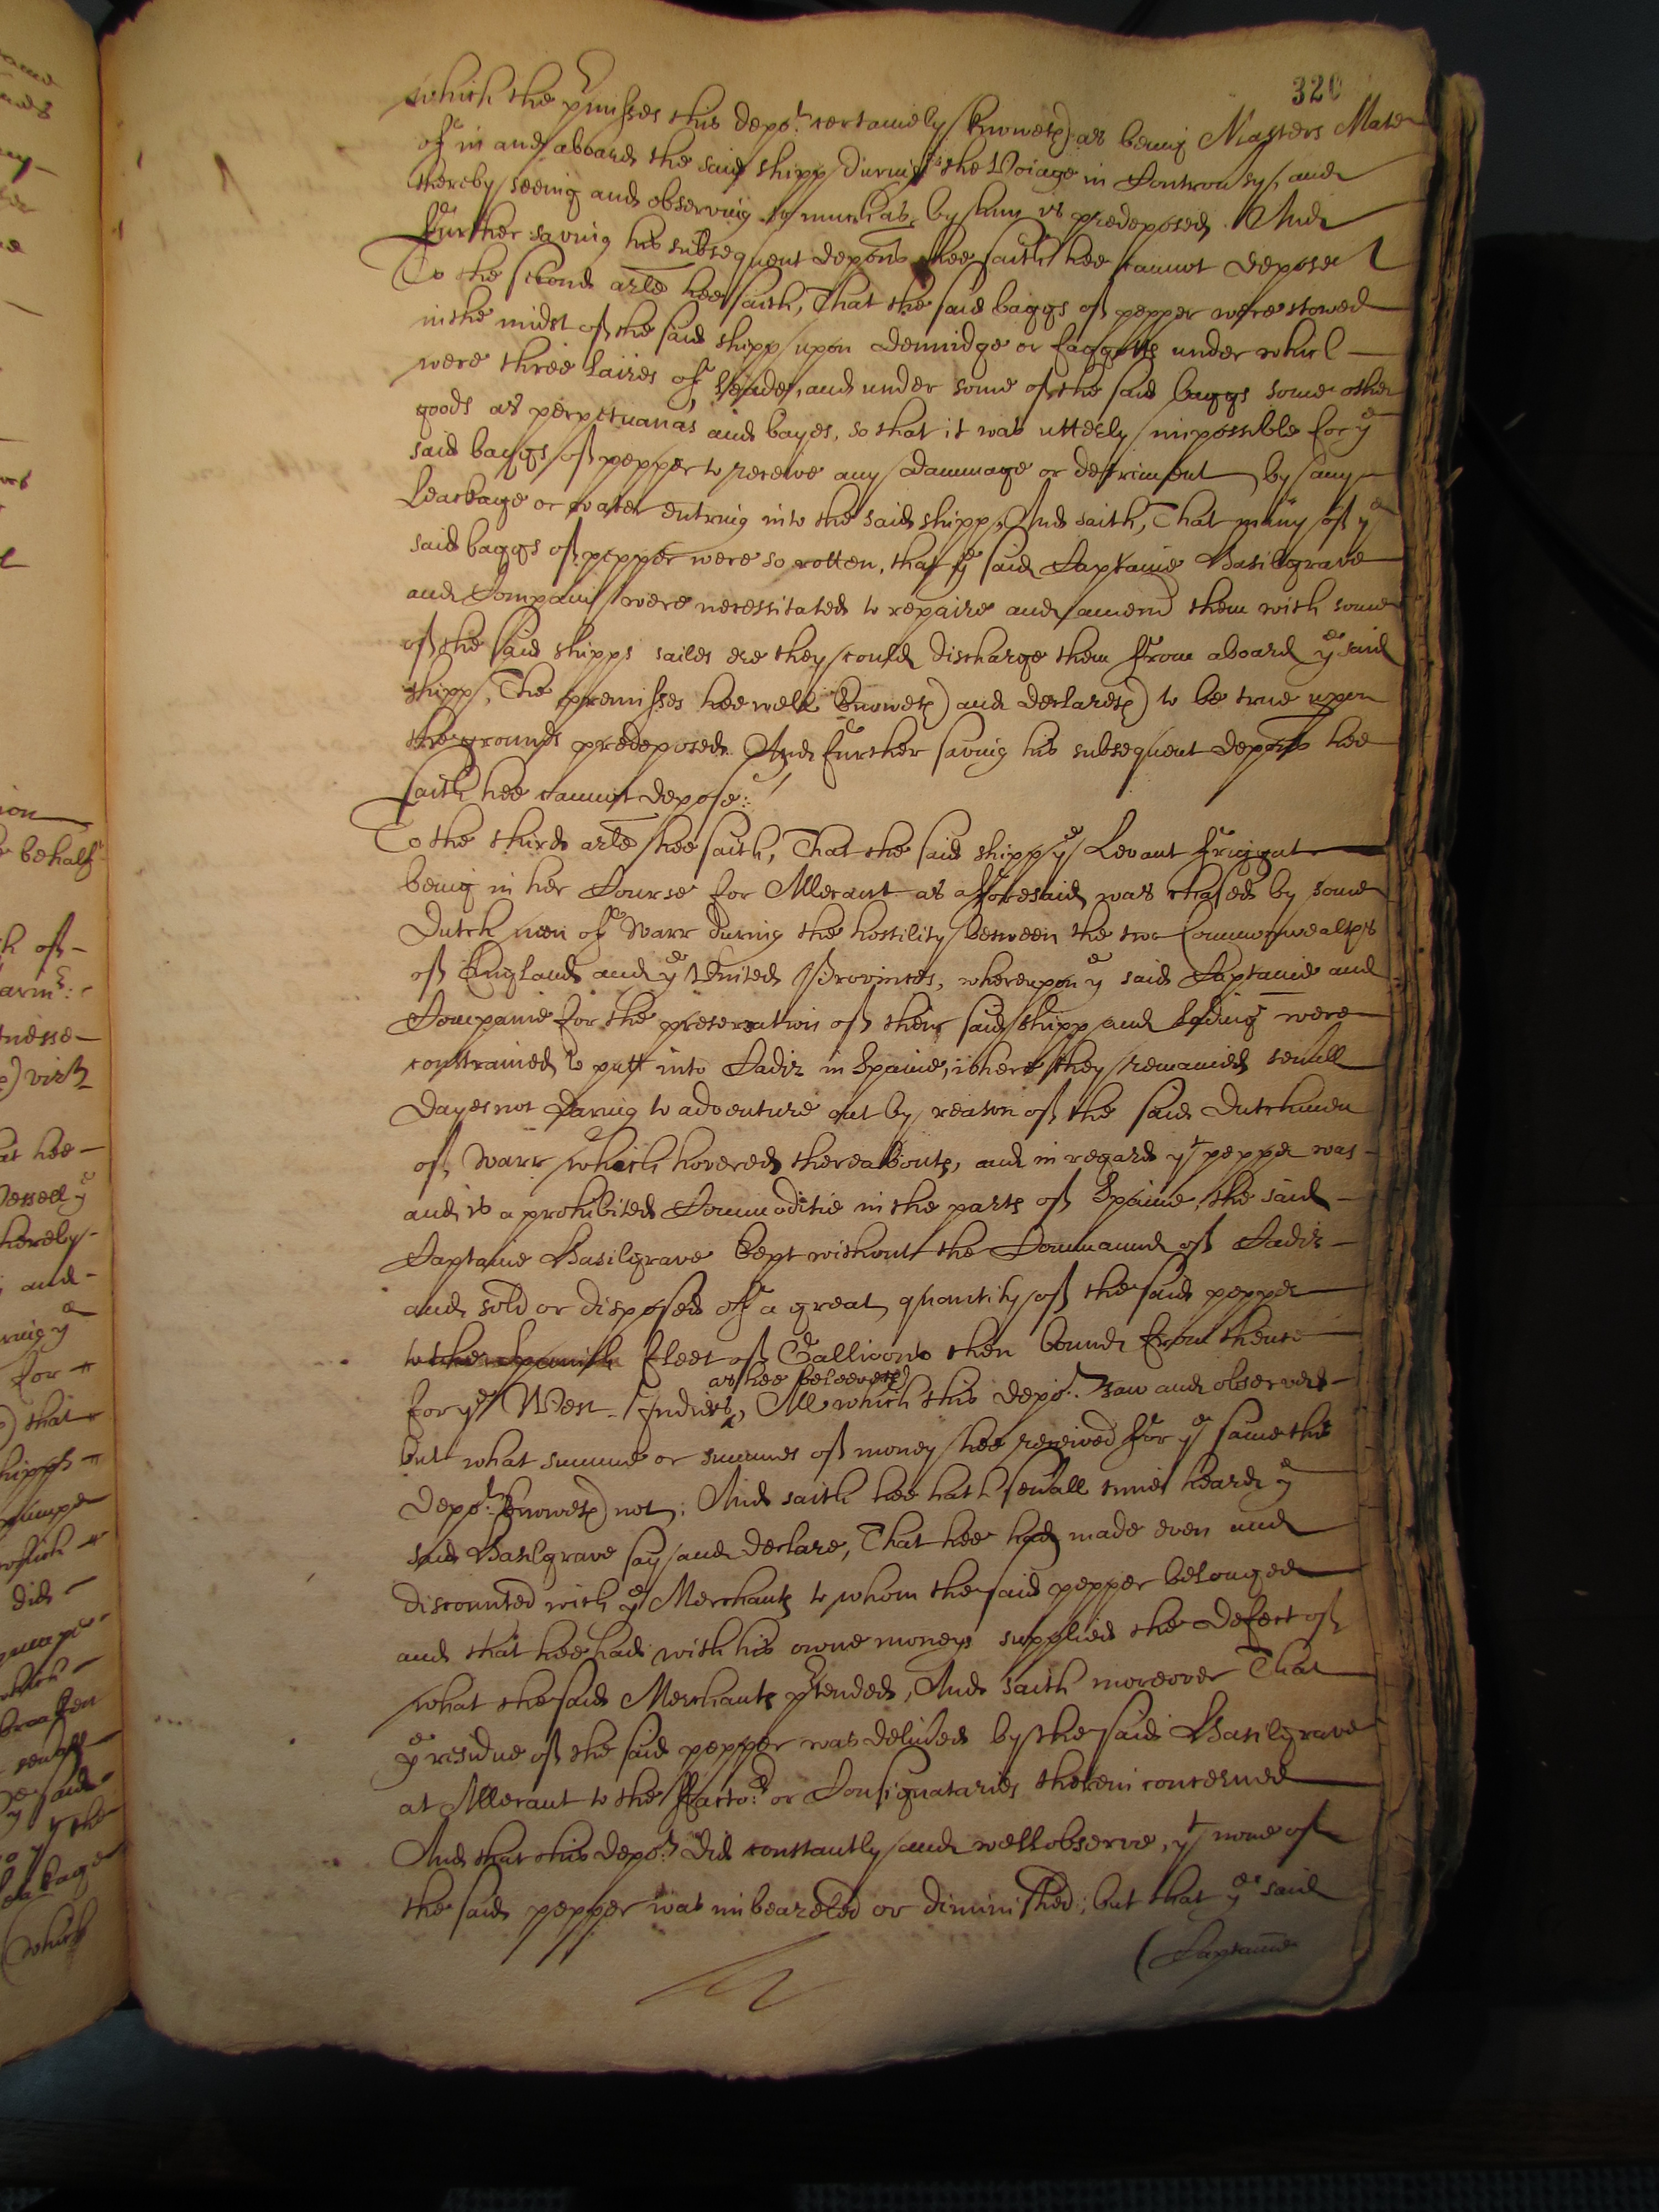 320
which the p'misses this depo.t certainely knoweth as being Masters Mate
of in and aboard the said shipp during the Voiage in Controv'sy, and
thereby seeing and observing so much as by him is predeposed. And
further saving his subsequent deposns hee saith hee cannot depose
To the second arle hee saith, That the said baggs of pepper were stowed
in the midst of the said shipp upon dennidge or faggotts under which
were three laires of Leade, and under some of the said baggs some other
goods as perpetuanas and bayes, so that it was utterly impossible for ye
said baggs of pepper to receive any dammage or detriment by any
Leackage or water entring into the said shipp, And saith, That many of ye
said baggs of pepper were so rotten, that ye said Captaine Basilgrave
and Company were necessitated to repaire and amend them with some
of the said shipps sailes ere they could discharge them from aboard ye said
shipp, The premisses hee well knoweth and declareth to be true upon
the grounds predeposed. And further saving his subsequent deposns hee
saith hee cannot depose:
To the third arle hee saith, That the said shipp ye Levant friggat
being in her Course for Allicant as aforesaid, was chased by some
Dutch men of Warr during the hostility betweeen the two Commonwealths
of England and ye United Provinces, whereupon ye said Captaine and
Companie for the preservation of their said shipp and lading were
constrained to putt into Cadiz in Spaine, where they remained sevall
dayes not daring to adventure out by reason of the said Dutchmen
of Warr which hovered thereabouts, and in regard yt pepper was
and is a prohibited Commoditie in the parts of Spaine, the said
Captaine Basilgrave kept without the Commaund of Cadiz
and sold or disposed of a great quantity of the said pepper
to the Spanish fleet of Gallioons then bound from thence
as hee beleeveth
for ye West Indies, All which this depo.t saw and observed
but what summe or summes of money hee received for ye same this
depo.t knoweth not; And saith hee hath sevall times heard ye
said Basilgrave say and declare, That hee had made even and
discounted with ye Merchants to whom the said pepper belonged
and that hee had with his owne moneys supplied the defect of
what the said Merchants p'tended, And saith moreover That
ye residue of the said pepper was deliv'ed by the said Basilgrave
at Allicant to the ffacto.rs or Consignataries therein concerned
And that this depo.t did constantly and well observe, yt none of
the said pepper was imbeazeled or diminished; but that ye said
(Captaine